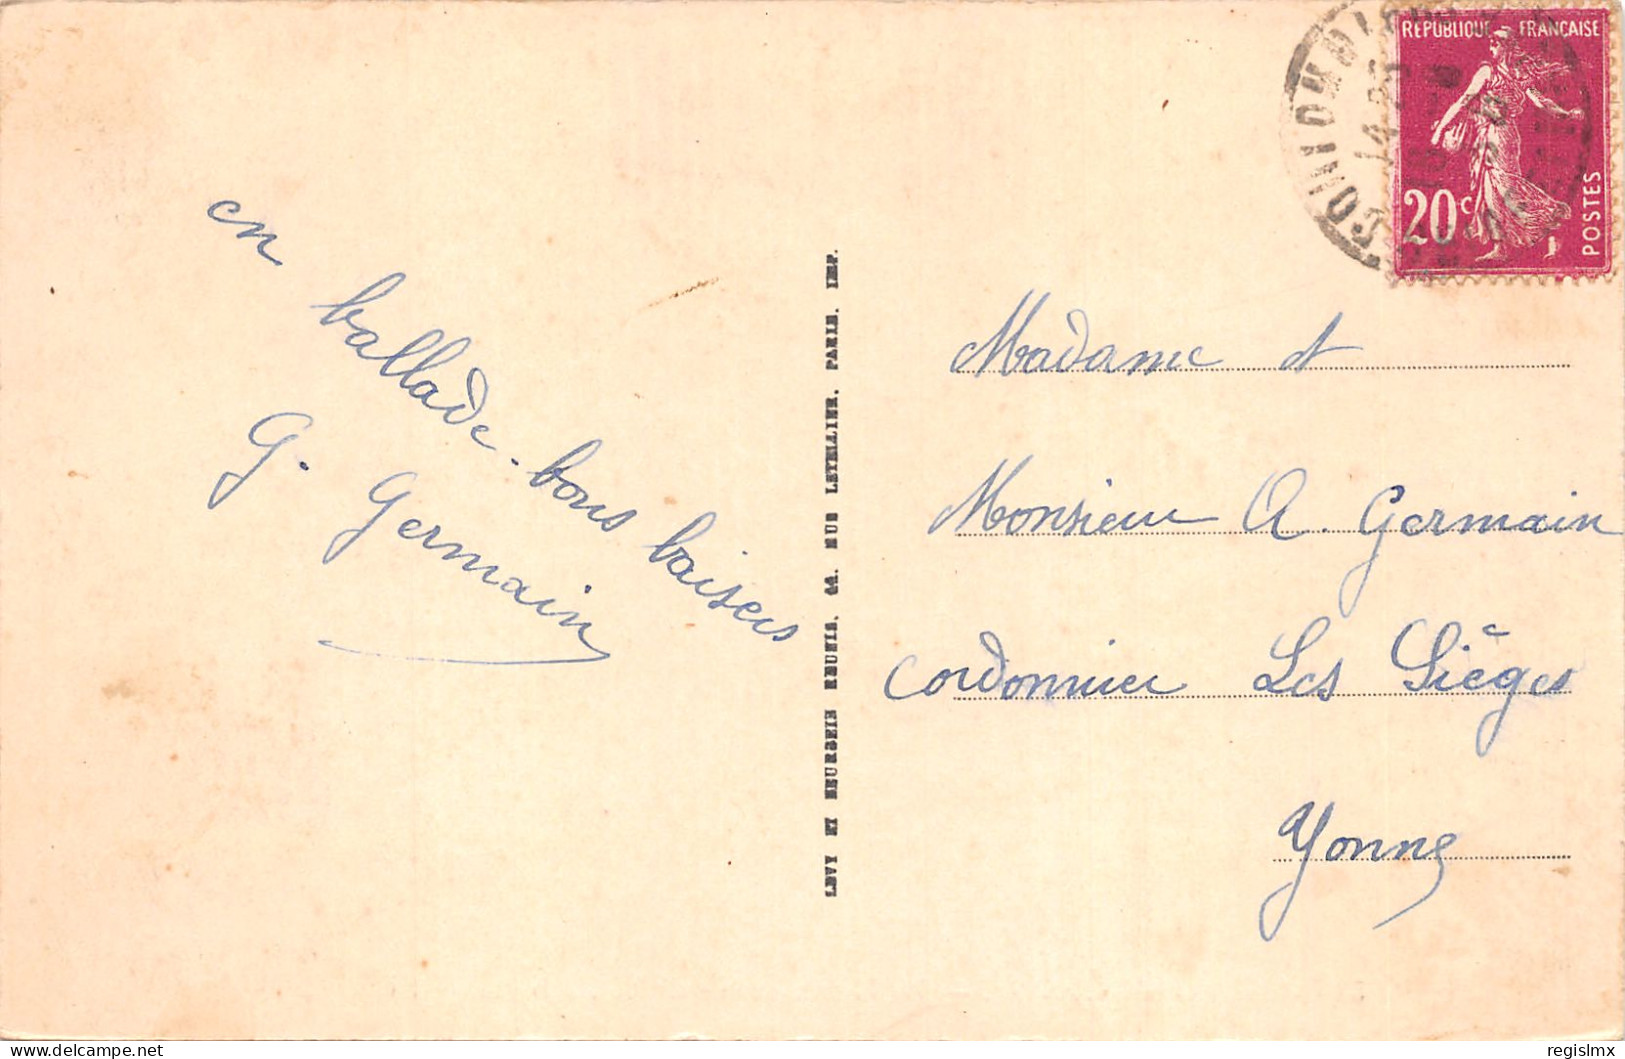 en ballade. bons baisers
G. Germain
LEVY ET NEURDEIN REUNIS, 44, RUE LETELLIER, PARIS, IMP.
RÉPUBLIQUE FRANÇAISE
20c
POSTES
14 25
Madame et
Monsieur A. Germain
Cordonnier Les Sièges
Yonne
delcampe.net
regislmx